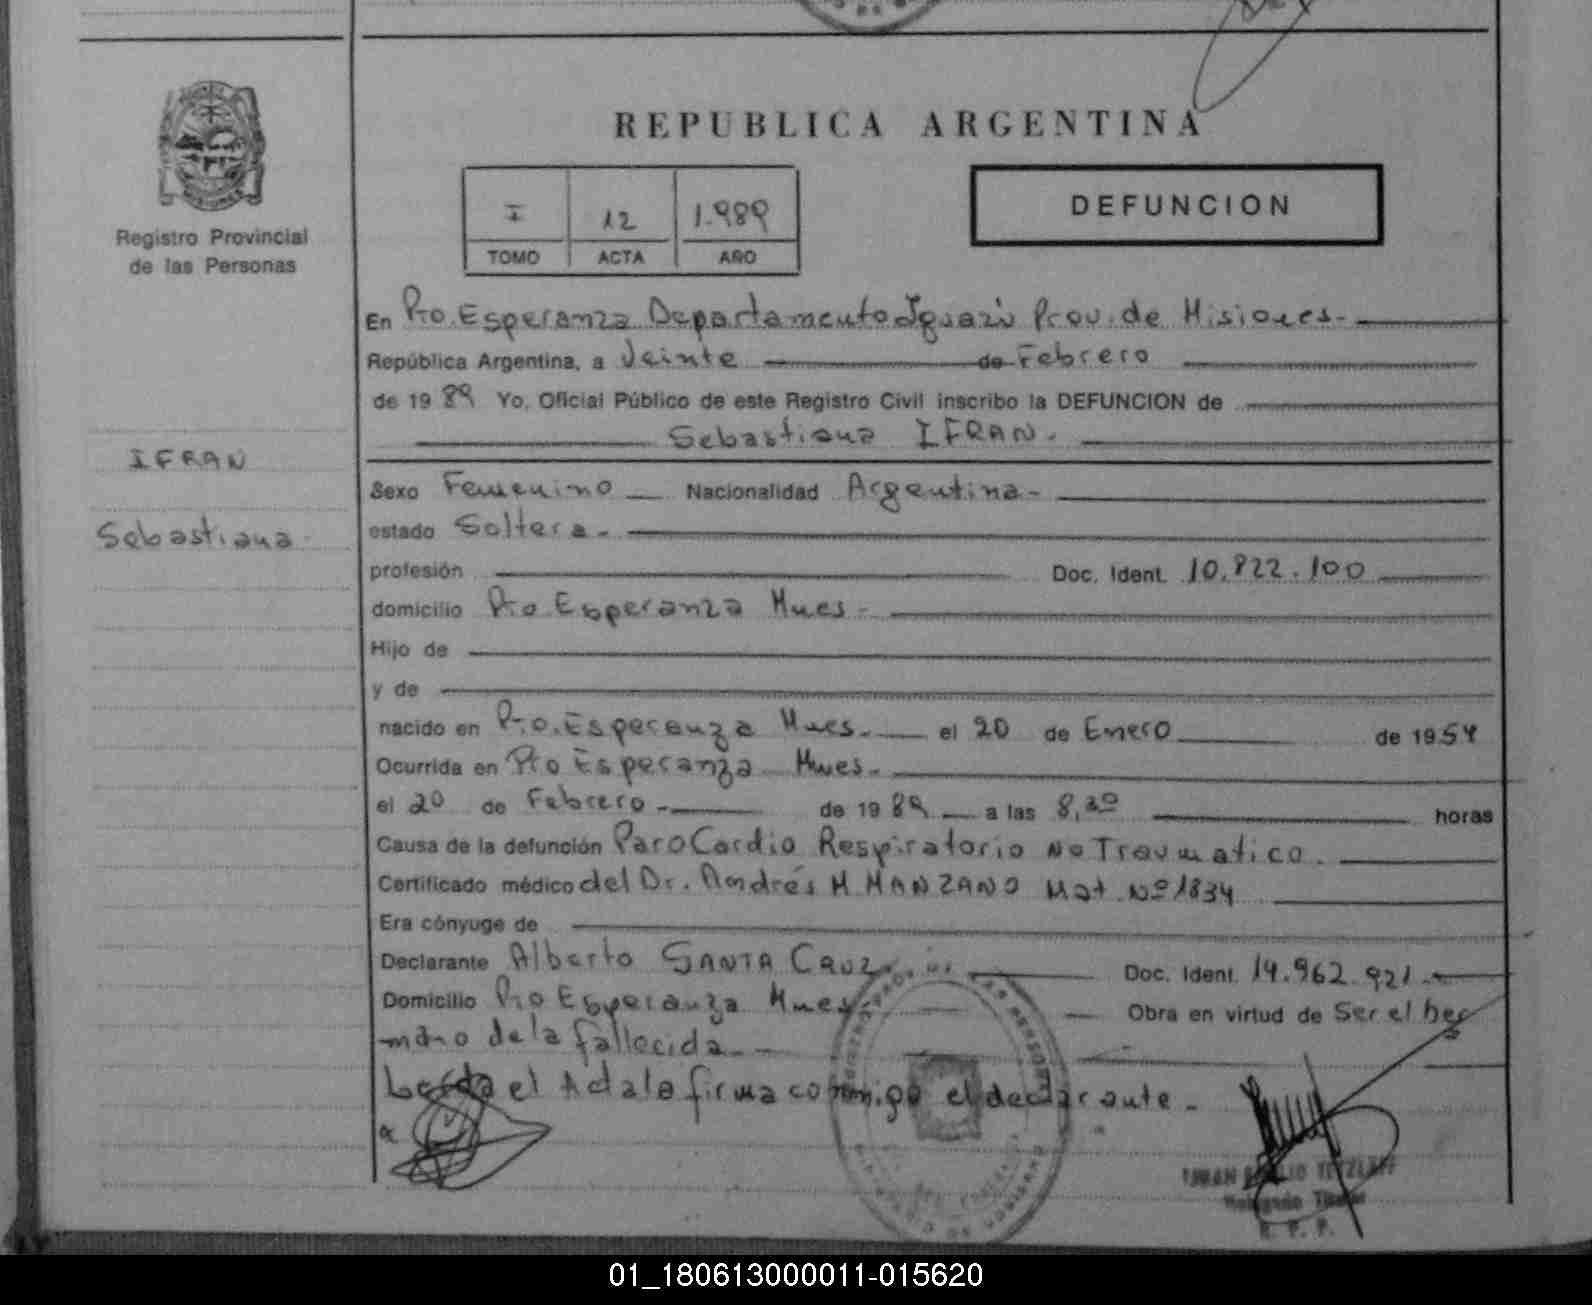 REPUBLICA ARGENTINA
I 12 1.989
TOMO ACTA AÑO
DEFUNCION
Registro Provincial
de las Personas
IFRAN
Sebastiana
En Pto. Esperanza Departamento Iguazú Prov. de Misiones.
República Argentina, a Veinte de Febrero
de 1989 Yo, Oficial Público de este Registro Civil inscribo la DEFUNCION de
Sebastiana IFRAN.
Sexo Femenino Nacionalidad Argentina
estado Soltera.
profesión Doc. Ident. 10.822.100
domicilio Pto Esperanza Mnes.
Hijo de
y de
nacido en Pto. Esperanza Mnes. el 20 de Enero de 1954
Ocurrida en Pto Esperanza Mnes.
el 20 de Febrero de 1989 a las 8,30 horas
Causa de la defunción Paro Cardio Respiratorio No Traumatico.
Certificado médico del Dr. Andrés M MANZANO Mat. Nº 1834
Era cónyuge de
Declarante Alberto SANTA CRUZ Doc. Ident. 14.962.921
Domicilio Pto Esperanza Mnes Obra en virtud de Ser el her
mano de la fallecida
Leída el Acta la firma conmigo el declarante
R. P. P.
01_180613000011-015620